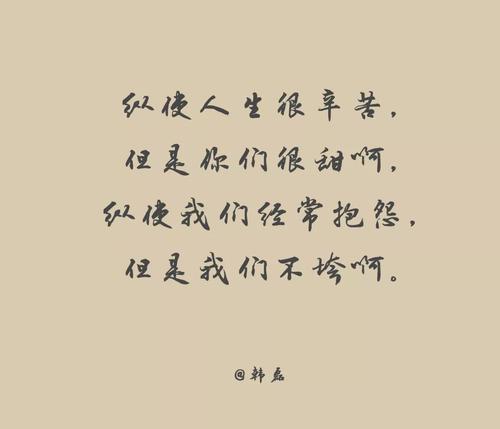 纵使人生很辛苦，
但是你们很甜啊，
纵使我们经常抱怨，
但是我们不垮啊。
@韩磊